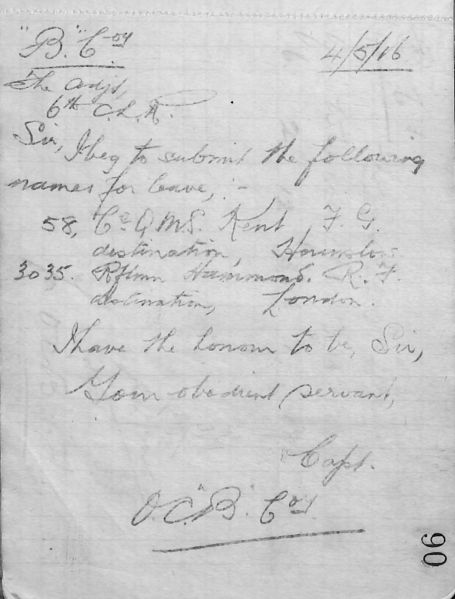 "B." Coy
4/5/16
The Adjt,
6th Ch. R.
Sir, I beg to submit the following
names for leave, :-
58, Co Q.M.S. Kent, F. G.
destination, Hounslow
3035. Rflmn Hammond. R. F.
destination, London.
I have the honour to be, Sir,
Your obedient servant,
Capt.
O.C. "B." Coy
90